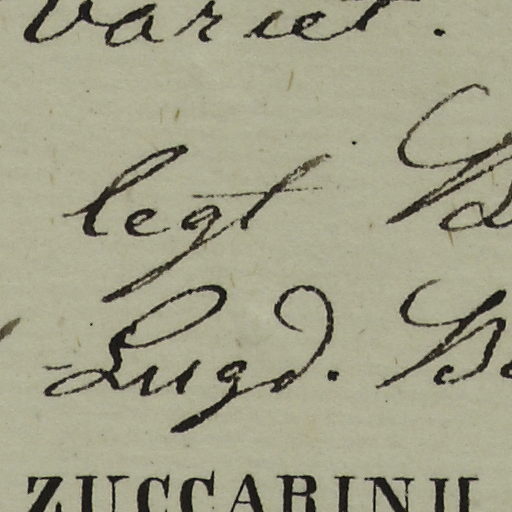 variet.
legt
Lugd.
ZUCCARINII